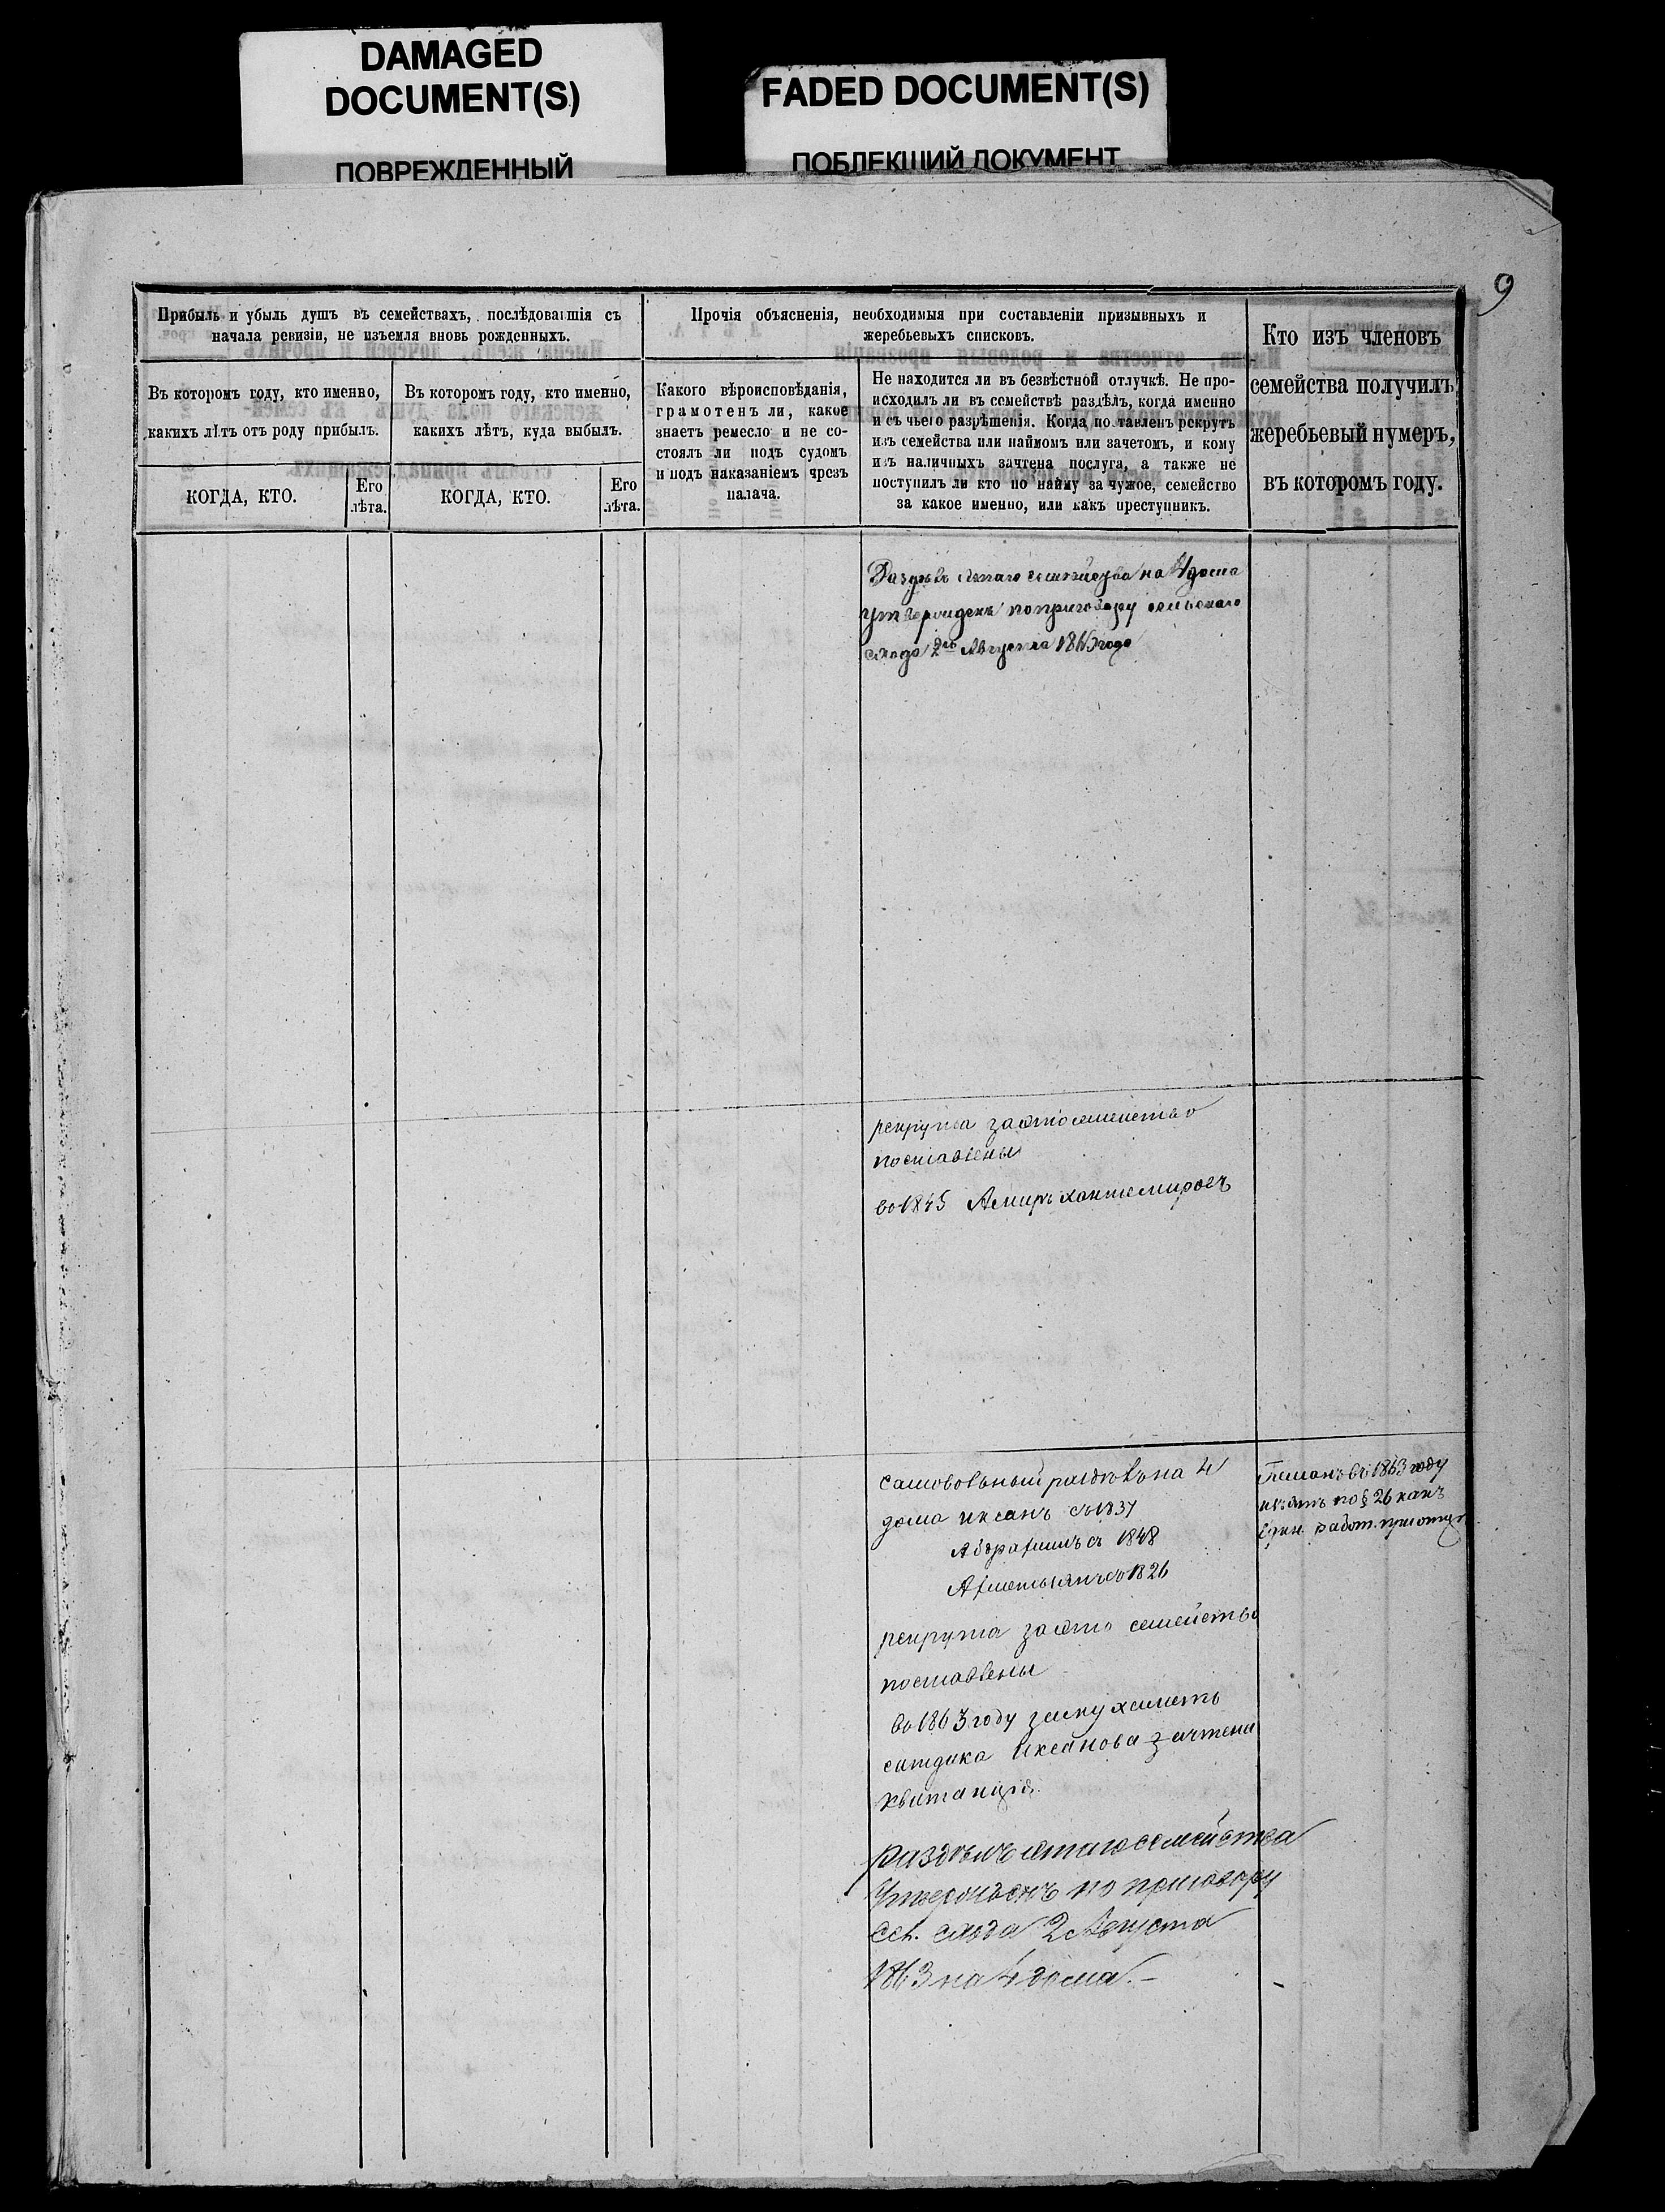 DAMAGED
DOCUMENT(S)
ПОВРЕЖДЕННЫЙ
FADED DOCUMENT(S)
ПОБЛЕКШИЙ ДОКУМЕНТ
9
Прибыль и убыль душъ въ семействахъ, послѣдовавшія съ
начала ревизіи, не изъемля вновь рожденныхъ.
Прочія объясненія, необходимыя при составленіи призывныхъ и
жеребьевыхъ списковъ.
Кто изъ членовъ
семейства получилъ
жеребьевый нумеръ,
въ которомъ году.
Въ которомъ году, кто именно,
какихъ лѣтъ отъ роду прибылъ.
Въ которомъ году, кто именно,
какихъ лѣтъ, куда выбылъ.
Какого вѣроисповѣданія,
грамотенъ ли, какое
знаетъ ремесло и не со-
стоялъ ли подъ судомъ
и подъ наказаніемъ чрезъ
палача.
Не находится ли въ безвѣстной отлучкѣ. Не про-
исходилъ ли въ семействѣ раздѣлъ, когда именно
и съ чьего разрѣшенія. Когда поставленъ рекрутъ
изъ семейства или наймомъ или зачетомъ, и кому
изъ наличныхъ зачтена послуга, а также не
поступилъ ли кто по найму за чужое, семейство
за какое именно, или какъ преступникъ.
КОГДА, КТО.
Его
лѣта.
КОГДА, КТО.
Его
лѣта.
Раздѣлъ этаго семейства на 4 дома
утвержденъ по приговору сельскаго
схода 2го Августа 1863 года
рекрута за это семейство
поставлены
во 1845 Амиръ хантемировъ
самовольный раздѣлъ на 4
дома иксанъ съ 1837
съ 1848
съ 1826
рекрута за это семейство
поставлены
во 1863 году за
ситдика Иксанова зачтена
квитанція
раздѣлъ этаго семейства
Утвержденъ по приговору
сел. схода 2 Августа
1863 на 4 дома. —
въ 1863 году
по § 26 какъ
един. работ. при отцѣ